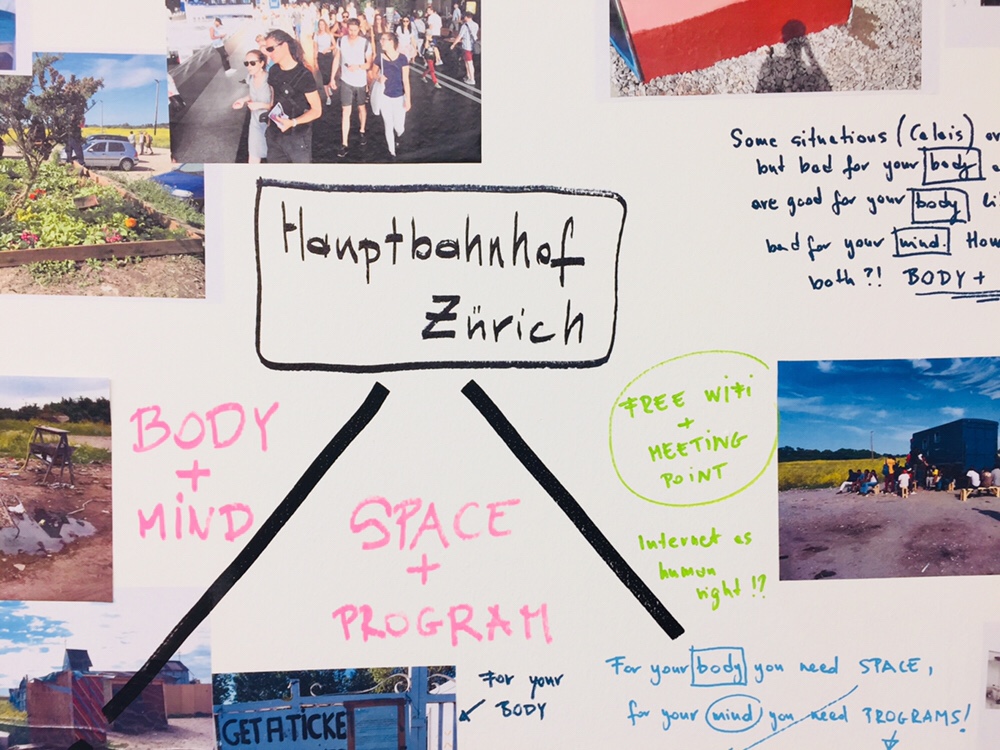 Some situations (Calais)
but bad for your body
are good for your body
bad for your mind.
both?! BODY +
Hauptbahnhof
Zürich
BODY
+
MIND
SPACE
+
PROGRAM
FREE WiFi
+
MEETING
POINT
Internet as
human
right!?
GET A TICKE
For your
BODY
For your body you need SPACE,
for your mind you need PROGRAMS!